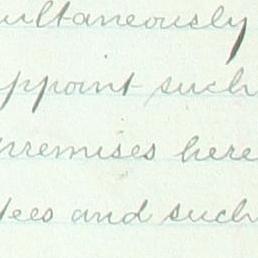 ultaneously
ppoint such
premises here
tees and such